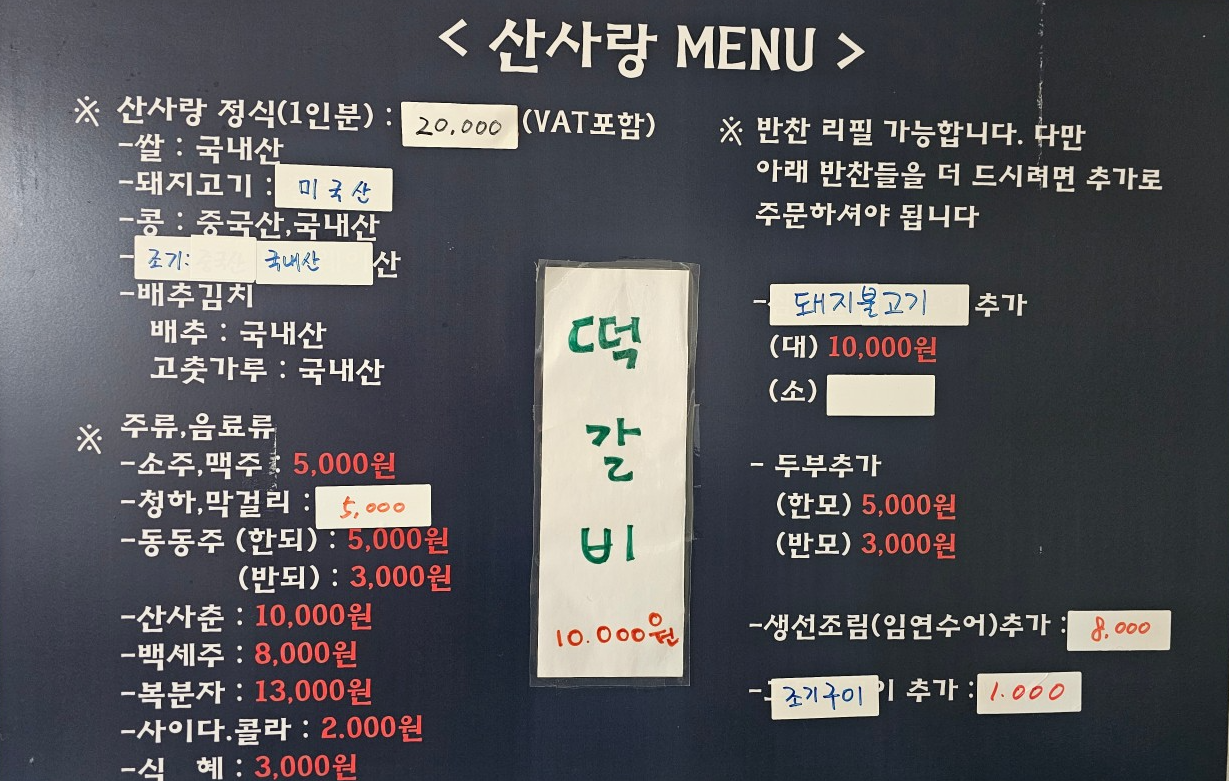 < 산사랑 MENU >
※ 산사랑 정식(1인분) : 20,000 (VAT포함)
-쌀 : 국내산
-돼지고기 : 미국산
-콩 : 중국산,국내산
- 조기: 국내산 산
-배추김치
배추 : 국내산
고춧가루 : 국내산
※ 주류,음료류
-소주,맥주 : 5,000원
-청하,막걸리 : 5,000
-동동주 (한되) : 5,000원
(반되) : 3,000원
-산사춘 : 10,000원
-백세주 : 8,000원
-복분자 : 13,000원
-사이다.콜라 : 2.000원
-식 혜 : 3,000원
떡
갈
비
10.000원
※ 반찬 리필 가능합니다. 다만
아래 반찬들을 더 드시려면 추가로
주문하셔야 됩니다
- 돼지불고기 추가
(대) 10,000원
(소)
- 두부추가
(한모) 5,000원
(반모) 3,000원
-생선조림(임연수어)추가 : 8,000
- 조기구이 추가 : 1.000